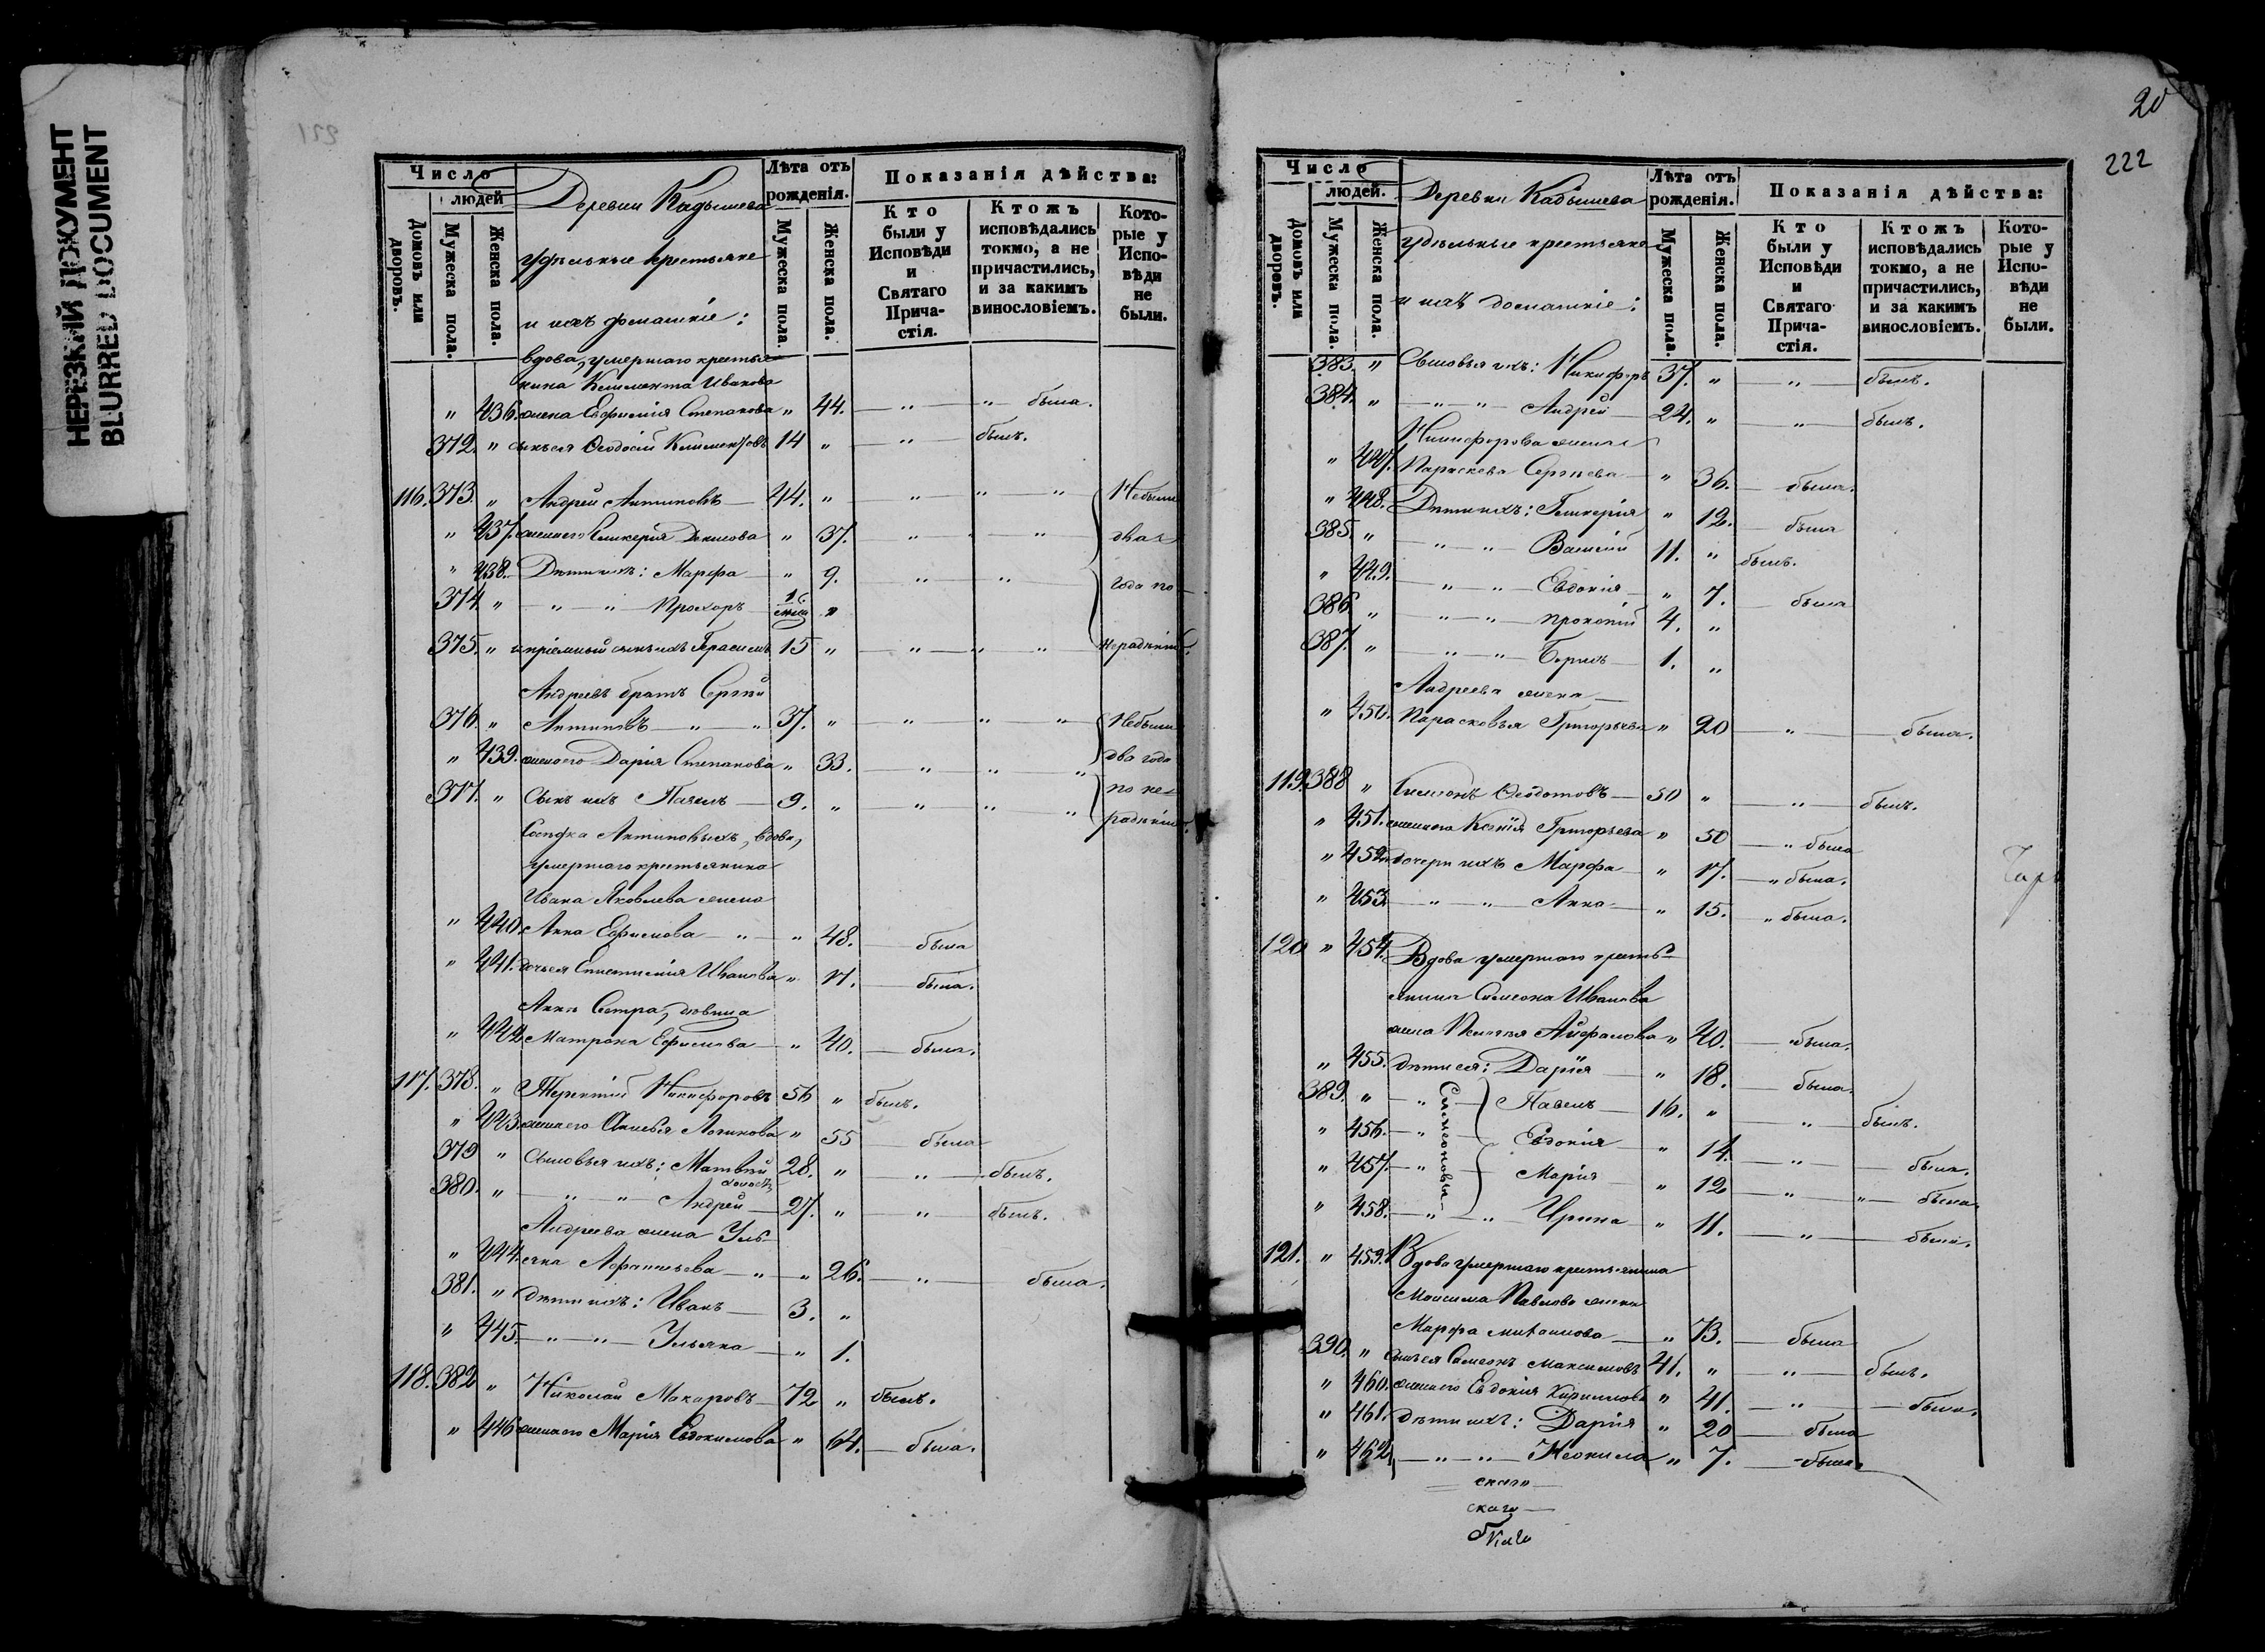 НЕРЕЗКИЙ ДОКУМЕНТ
BLURRED DOCUMENT
Число
людей
Домовъ или дворовъ.
Мужеска пола.
Женска пола.
Деревни Кадышева
удѣльные крестьяне
и ихъ домашніе:
Лѣта отъ рожденія.
Мужеска пола.
Женска пола.
Показанія дѣйства:
Кто были у Исповѣди и Святаго Прича-стія.
Ктожъ исповѣдались токмо, а не причастились, и за какимъ винословіемъ.
Кото-рые у Испо-вѣди не были.
вдова, умершаго крестья-
нина Климента Иванова
" 436. жена Евфимія Степанова " 44. " " была.
372. " сынъ ея Ѳеодосій Климентовъ 14 " " былъ.
116. 373. " Андрей Антиповъ 44. " " " " Небыли
" 437. жена его Гликерія Денисова " 37. " " " два
" 438. Дѣти ихъ: Марфа " 9. " " года по
374. " " " Прохоръ "
375. " и пріемный сынъ ихъ Герасимъ 15 " " " " нерадѣнію.
Андреевъ братъ Сергѣй
376. " Антиповъ " " 37. " " " " Небыли
" 439. жена его Дарія Степанова " 33. " " " два года
377. " Сынъ ихъ Павелъ 9. " " " " по не-
радѣнію.
Сосѣдка Антиповыхъ, вдова,
умершаго крестьянина
Ивана Яковлева жена
" 440. Анна Ефимова " " 48. была
" 441. дочь ея Ивановa " 17. была.
Анны Сестра, дѣвица
" 442. Матрона Ефимова " 40. была.
117. 378. " Терентій Никифоровъ 56 " былъ.
" 443. жена его Логинова " 55 была
379 " Сыновья ихъ: Матвѣй 28. " " былъ.
холостъ
380. " " " Андрей 27. " " былъ.
Андреева жена Уль-
" 444. яна " " 26. " была.
381. " дѣти ихъ: Иванъ 3. "
" 445. " " Ульяна " 1.
118. 382 " Николай Макаровъ 72 " былъ.
" 446 жена его Марія Евдокимова " 64. была.
20
222
Число
людей.
Домовъ или дворовъ.
Мужеска пола.
Женска пола.
Деревни Кадышева
удѣльные крестьяне
и ихъ домашніе:
Лѣта отъ рожденія.
Мужеска пола.
Женска пола.
Показанія дѣйства:
Кто были у Исповѣди и Святаго Прича-стія.
Ктожъ исповѣдались токмо, а не причастились, и за какимъ винословіемъ.
Кото-рые у Испо-вѣди не были.
383. " Сыновья ихъ: Никифоръ 37. " " былъ.
384. " " " Андрей 24. " " былъ.
Никифорова жена
" 447. Параскева Сергѣева " 36. была.
" 448. Дѣти ихъ: Гликерія " 12. была
385. " " " Василій 11. " былъ.
" 449. " " Евдокія " 7. была
386. " " " Прокопій 4. "
387. " " " Борисъ 1. "
Андреева жена
" 450. Парасковья Григорьева " 20 " была.
119. 388 " Симеонъ Ѳеодотовъ 50 " " былъ.
" 451. жена его Ксенія Григорьева " 50 " была
" 452. дочери ихъ Марфа " 17. " была.
" 453. " " Анна " 15. " была.
120 " 454. Вдова умершаго кресть-
янина Симеона Иванова
жена " 40. была.
" 455. дѣти ея: Дарія " 18. была.
Симеоновы
389. " " Павелъ 16. " " былъ.
" 456. " Евдокія " 14. " была.
" 457. " Марія " 12 " " была
" 458. " " Ирина " 11. " была.
121. " 459. Вдова умершаго крестьянина
Максима Павлова жена
Марфа " 73. была
390. " сынъ ея Симеонъ Максимовъ 41. " " былъ.
" 460. жена его Евдокія Кириллова " 41. " была.
" 461. дѣти ихъ: Дарія " 20 была
" 462 " " Неонила " 7. была.
скаго
скаго